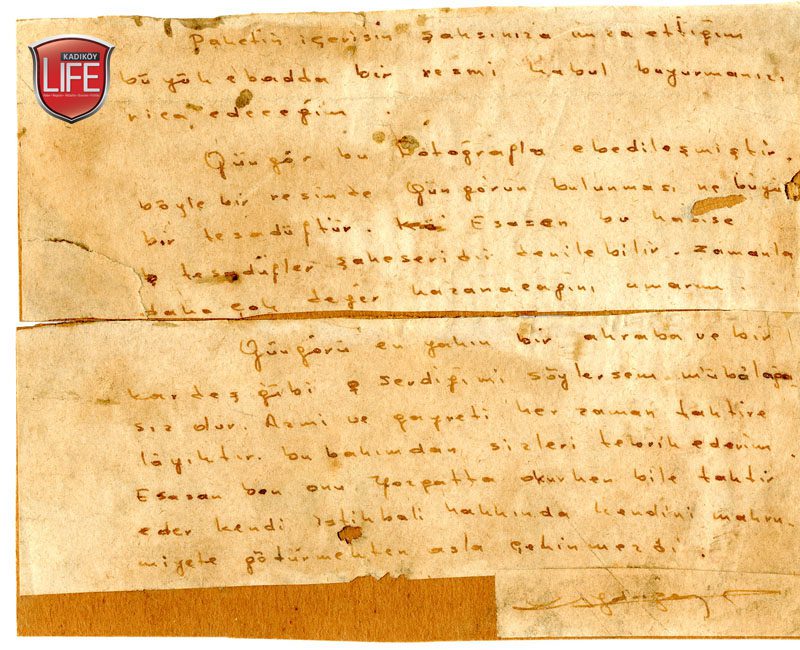 KADIKÖY
LIFE
Paketin içerisin şahsınıza imza ettiğim
büyük ebadda bir resmi kabul buyurmanızı
rica edeceğim.
Güngör bu fotoğrafla ebedileşmiştir.
böyle bir resimde Güngörün bulunması ne büyük
bir tesadüftür. Esasen bu hadise
tesadüfler şaheseridir denilebilir. Zamanla
daha çok değer kazanacağını umarım.
Güngörü en yakın bir akraba ve bir
kardeş gibi serdiğimi söylersem mübalağa
sız olur. Azmi ve gayreti her zaman taktire
lâyıktır. bu bakımdan sizleri tebrik ederim.
Esasan ben onu Yozgatta okurken bile taktir
eder kendi istikbali hakkında kendini mahru-
miyete götürmekten asla çekinmezdi.